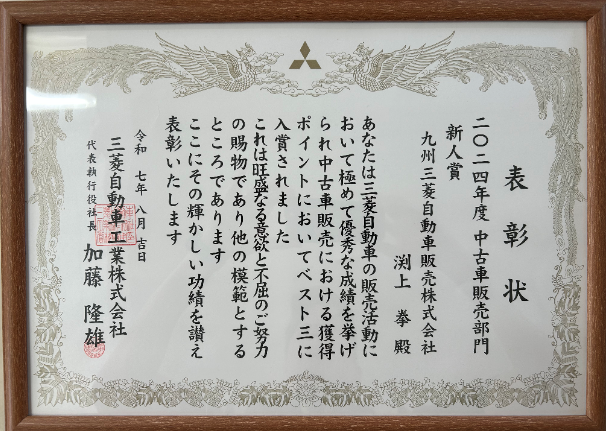 表彰状
二〇二四年度 中古車販売部門
新人賞
九州三菱自動車販売株式会社
渕上 拳 殿
あなたは三菱自動車の販売活動に
おいて極めて優秀な成績を挙げ
られ中古車販売における獲得
ポイントにおいてベスト三に
入賞されました
これは旺盛なる意欲と不屈のご努力
の賜物であり他の模範とする
ところであります
ここにその輝かしい功績を讃え
表彰いたします
令和 七年 八月 吉日
三菱自動車工業株式会社
代表執行役社長 加藤 隆雄